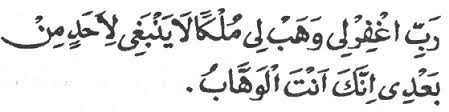 رَبِّ اغْفِرْلِى وَهَبْ لِى مُلْكًا لَا يَنْبَغِى لِاَحَدٍ مِنْ
بَعْدِى اِنَّكَ اَنْتَ الْوَهَّابُ.